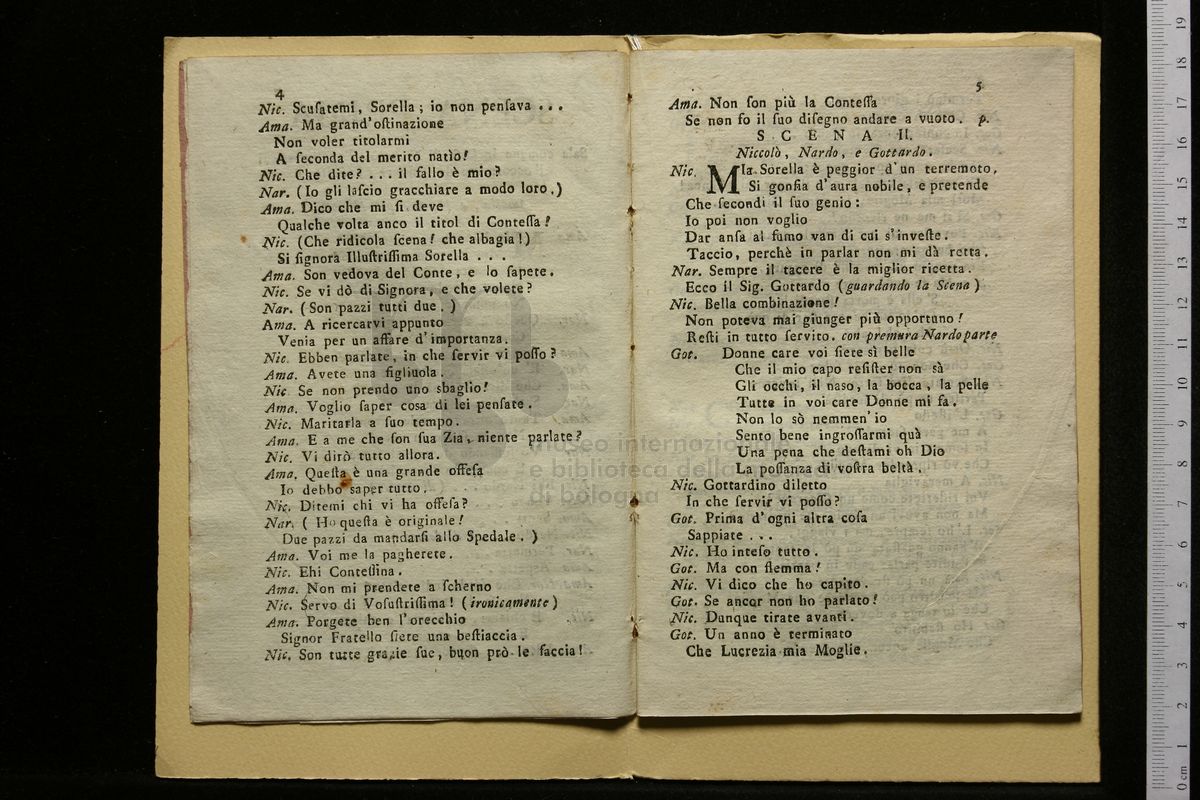 4
Nic. Scuſatemi, Sorella; io non penſava ...
Ama. Ma grand'oſtinazione
Non voler titolarmi
A ſeconda del merito natìo!
Nic. Che dite? ... il fallo è mio?
Nar. (Io gli laſcio gracchiare a modo loro.)
Ama. Dico che mi ſi deve
Qualche volta anco il titol di Conteſſa!
Nic. (Che ridicola ſcena! che albagia!)
Si ſignora Illuſtriſſima Sorella ...
Ama. Son vedova del Conte, e lo ſapete.
Nic. Se vi dò di Signora, e che volete?
Nar. (Son pazzi tutti due.)
Ama. A ricercarvi appunto
Venia per un affare d'importanza.
Nic. Ebben parlate, in che ſervir vi poſſo?
Ama. Avete una figliuola.
Nic Se non prendo uno sbaglio!
Ama. Voglio ſaper coſa di lei penſate.
Nic. Maritarla a ſuo tempo.
Ama. E a me che ſon ſua Zia, niente parlate?
Nic. Vi dirò tutto allora.
Ama. Queſta è una grande offeſa
Io debbo saper tutto.
Nic. Ditemi chi vi ha offeſa?
Nar. ( Ho queſta è originale!
Due pazzi da mandarſi allo Spedale. )
Ama. Voi me la pagherete.
Nic. Ehi Conteſſina.
Ama. Non mi prendete a ſcherno
Nic. Servo di Voſuſtriſſima! (ironicamente)
Ama. Porgete ben l'orecchio
Signor Fratello ſiete una beſtiaccia.
Nic. Son tutte grazie ſue, buon prò le faccia!
5
Ama. Non ſon più la Conteſſa
Se non fo il ſuo diſegno andare a vuoto. p.
SCENA II.
Niccolò, Nardo, e Gottardo.
Nic. MIa Sorella è peggior d'un terremoto,
Si gonfia d'aura nobile, e pretende
Che ſecondi il ſuo genio:
Io poi non voglio
Dar anſa al fumo van di cui s'inveſte.
Taccio, perchè in parlar non mi dà retta.
Nar. Sempre il tacere è la miglior ricetta.
Ecco il Sig. Gottardo (guardando la Scena)
Nic. Bella combinazione!
Non poteva mai giunger più opportuno!
Reſti in tutto ſervito. con premura Nardo parte
Got. Donne care voi ſiete sì belle
Che il mio capo reſiſter non sà
Gli occhi, il naso, la bocca, la pelle
Tutte in voi care Donne mi fa.
Non lo sò nemmen'io
Sento bene ingroſſarmi quà
Una pena che deſtami oh Dio
La poſſanza di voſtra beltà.
Nic. Gottardino diletto
In che ſervir vi poſſo?
Got. Prima d'ogni altra coſa
Sappiate ...
Nic. Ho inteſo tutto.
Got. Ma con flemma!
Nic. Vi dico che ho capito.
Got. Se ancor non ho parlato!
Nic. Dunque tirate avanti.
Got. Un anno è terminato
Che Lucrezia mia Moglie.
museo internazionale
e biblioteca della
di bologna
0 cm 1 2 3 4 5 6 7 8 9 10 11 12 13 14 15 16 17 18 19